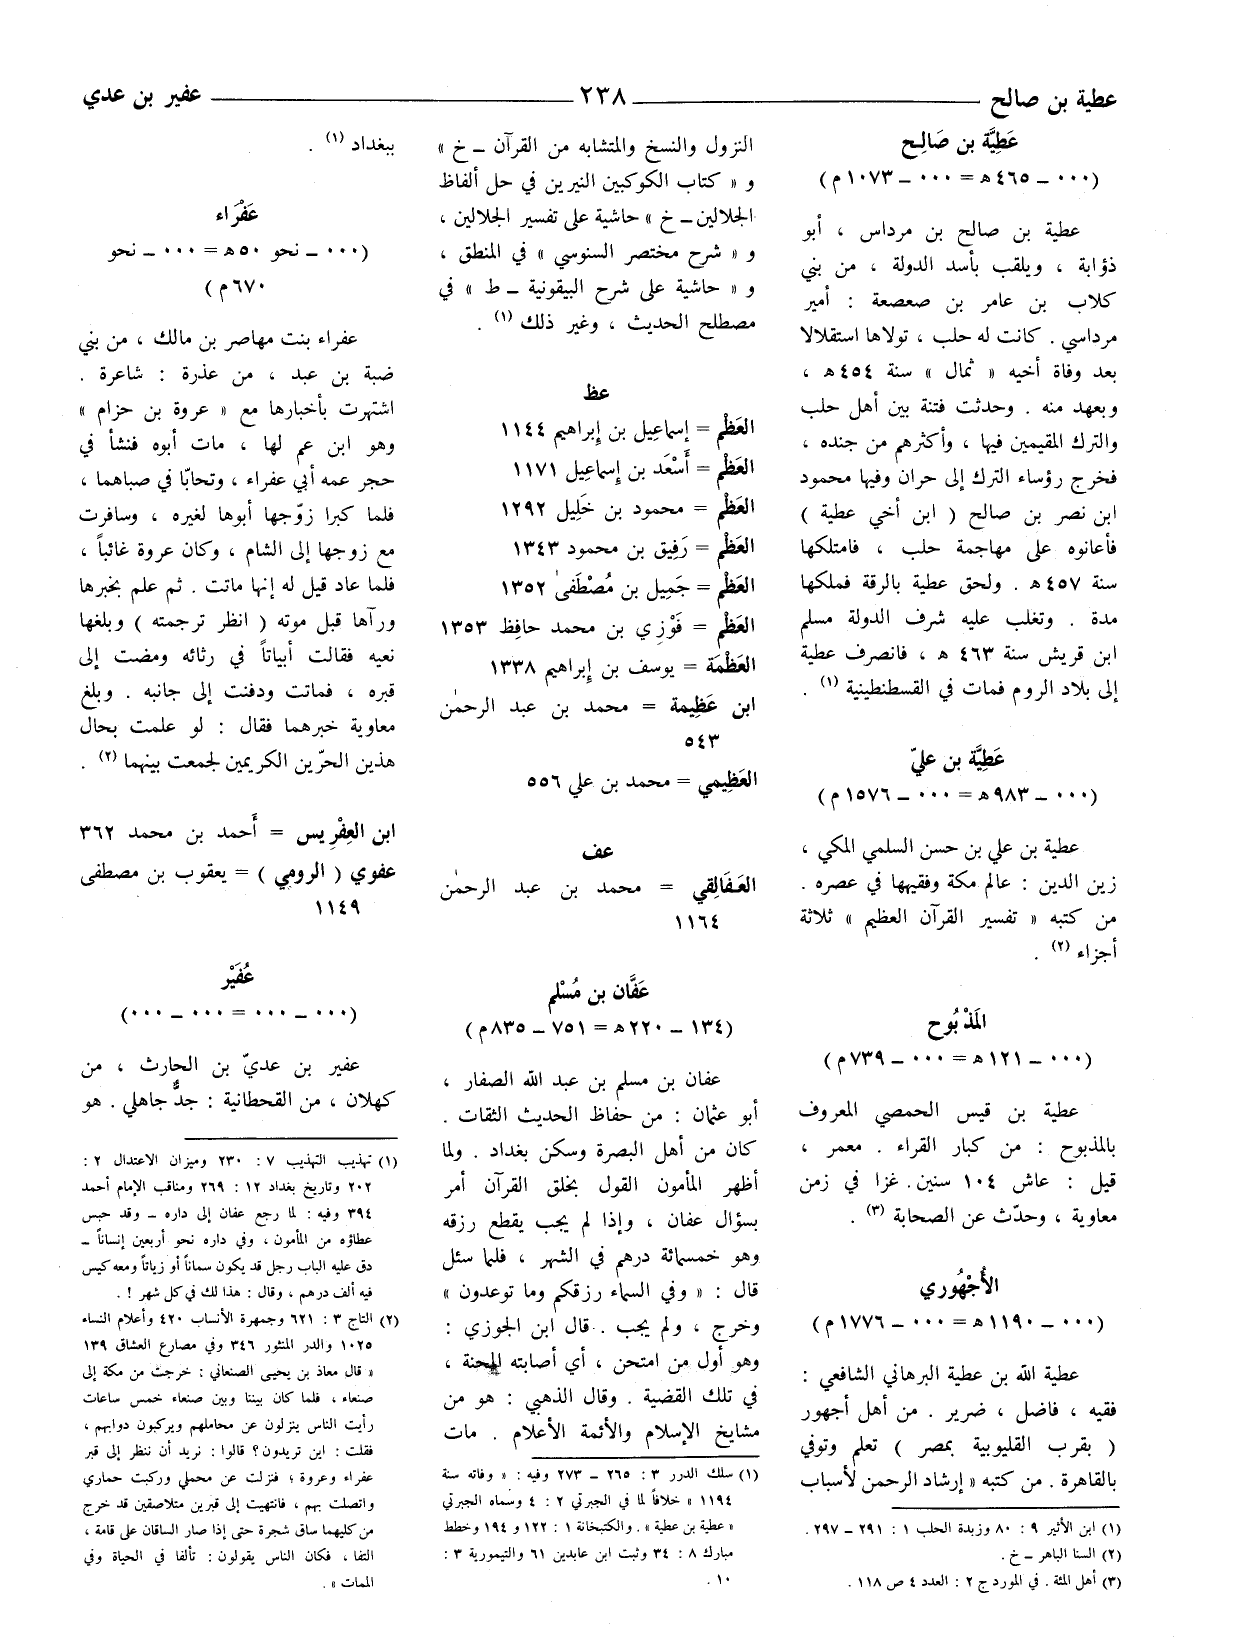 عطية بن صالح ٢٣٨ عفير بن عدي
عَطِيَّة بن صَالِح
(٠٠٠ ـ ٤٦٥ هـ = ٠٠٠ ـ ١٠٧٣ م)
عطية بن صالح بن مرداس ، أبو
ذؤابة ، ويلقب بأسد الدولة ، من بني
كلاب بن عامر بن صعصعة : أمير
مرداسي . كانت له حلب ، تولاها استقلالا
بعد وفاة أخيه « ثمال » سنة ٤٥٤ هـ ،
وبعهد منه . وحدثت فتنة بين أهل حلب
والترك المقيمين فيها ، وأكثرهم من جنده ،
فخرج رؤساء الترك إلى حران وفيها محمود
ابن نصر بن صالح ( ابن أخي عطية )
فأعانوه على مهاجمة حلب ، فامتلكها
سنة ٤٥٧ هـ . ولحق عطية بالرقة فملكها
مدة . وتغلب عليه شرف الدولة مسلم
ابن قريش سنة ٤٦٣ هـ ، فانصرف عطية
إلى بلاد الروم فمات في القسطنطينية (١) .
عَطِيَّة بن عليّ
(٠٠٠ ـ ٩٨٣ هـ = ٠٠٠ ـ ١٥٧٦ م)
عطية بن علي بن حسن السلمي المكي ،
زين الدين : عالم مكة وفقيهها في عصره .
من كتبه « تفسير القرآن العظيم » ثلاثة
أجزاء (٢) .
المَذْبُوح
(٠٠٠ ـ ١٢١ هـ = ٠٠٠ ـ ٧٣٩ م)
عطية بن قيس الحمصي المعروف
بالمذبوح : من كبار القراء . معمر ،
قيل : عاش ١٠٤ سنين . غزا في زمن
معاوية ، وحدّث عن الصحابة (٣) .
الأُجْهُوري
(٠٠٠ ـ ١١٩٠ هـ = ٠٠٠ ـ ١٧٧٦ م)
عطية الله بن عطية البرهاني الشافعي :
فقيه ، فاضل ، ضرير . من أهل أجهور
( بقرب القليوبية بمصر ) تعلم وتوفي
بالقاهرة . من كتبه « إرشاد الرحمن لأسباب
(١) ابن الأثير ٩ : ٨٠ وزبدة الحلب ١ : ٢٩١ ـ ٢٩٧ .
(٢) السنا الباهر ـ خ .
(٣) أهل المئة . في المورد ج ٢ : العدد ٤ ص ١١٨ .
النزول والنسخ والمتشابه من القرآن ـ خ »
و « كتاب الكوكبين النيرين في حل ألفاظ
الجلالين ـ خ » حاشية على تفسير الجلالين ،
و « شرح مختصر السنوسي » في المنطق ،
و « حاشية على شرح البيقونية ـ ط » في
مصطلح الحديث ، وغير ذلك (١) .
عظ
العَظْم = إسماعيل بن إبراهيم ١١٤٤
العَظْم = أَسْعَد بن إسماعيل ١١٧١
العَظْم = محمود بن خَليل ١٢٩٢
العَظْم = رَفيق بن محمود ١٣٤٣
العَظْم = جَميل بن مُصْطَفىٰ ١٣٥٢
العَظْم = فَوْزي بن محمد حافِظ ١٣٥٣
العَظْمَة = يوسف بن إبراهيم ١٣٣٨
ابن عَظِيمة = محمد بن عبد الرحمٰن
٥٤٣
العَظِيمي = محمد بن علي ٥٥٦
عف
العَفَالِقي = محمد بن عبد الرحمٰن
١١٦٤
عَفَّان بن مُسْلم
(١٣٤ ـ ٢٢٠ هـ = ٧٥١ ـ ٨٣٥ م)
عفان بن مسلم بن عبد الله الصفار ،
أبو عثمان : من حفاظ الحديث الثقات .
كان من أهل البصرة وسكن بغداد . ولما
أظهر المأمون القول بخلق القرآن أمر
بسؤال عفان ، وإذا لم يجب يقطع رزقه
وهو خمسمائة درهم في الشهر ، فلما سئل
قال : « وفي السماء رزقكم وما توعدون »
وخرج ، ولم يجب . قال ابن الجوزي :
وهو أول من امتحن ، أي أصابته المحنة ،
في تلك القضية . وقال الذهبي : هو من
مشايخ الإسلام والأئمة الأعلام . مات
(١) سلك الدرر ٣ : ٢٦٥ ـ ٢٧٣ وفيه : « وفاته سنة
١١٩٤ » خلافاً لما في الجبرتي ٢ : ٤ وسماه الجبرتي
« عطية بن عطية » . والكتبخانة ١ : ١٢٢ و ١٩٤ وخطط
مبارك ٨ : ٣٤ وثبت ابن عابدين ٦١ والتيمورية ٣ :
١٠ .
ببغداد (١) .
عَفْرَاء
(٠٠٠ ـ نحو ٥٠ هـ = ٠٠٠ ـ نحو
٦٧٠ م)
عفراء بنت مهاصر بن مالك ، من بني
ضبة بن عبد ، من عذرة : شاعرة .
اشتهرت بأخبارها مع « عروة بن حزام »
وهو ابن عم لها ، مات أبوه فنشأ في
حجر عمه أبي عفراء ، وتحابّا في صباهما ،
فلما كبرا زوّجها أبوها لغيره ، وسافرت
مع زوجها إلى الشام ، وكان عروة غائباً ،
فلما عاد قيل له إنها ماتت . ثم علم بخبرها
ورآها قبل موته ( انظر ترجمته ) وبلغها
نعيه فقالت أبياتاً في رثائه ومضت إلى
قبره ، فماتت ودفنت إلى جانبه . وبلغ
معاوية خبرهما فقال : لو علمت بحال
هذين الحرّين الكريمين لجمعت بينهما (٢) .
ابن العِفْرِيس = أَحمد بن محمد ٣٦٢
عفوي ( الرومي ) = يعقوب بن مصطفى
١١٤٩
عُفَيْر
(٠٠٠ ـ ٠٠٠ = ٠٠٠ ـ ٠٠٠)
عفير بن عديّ بن الحارث ، من
كهلان ، من القحطانية : جدٌّ جاهلي . هو
(١) تهذيب التهذيب ٧ : ٢٣٠ وميزان الاعتدال ٢ :
٢٠٢ وتاريخ بغداد ١٢ : ٢٦٩ ومناقب الإمام أحمد
٣٩٤ وفيه : لما رجع عفان إلى داره ـ وقد حبس
عطاؤه من المأمون ، وفي داره نحو أربعين إنساناً ـ
دق عليه الباب رجل قد يكون سماناً أو زياتاً ومعه كيس
فيه ألف درهم ، وقال : هذا لك في كل شهر ! .
(٢) التاج ٣ : ٦٢١ وجمهرة الأنساب ٤٢٠ وأعلام النساء
١٠٢٥ والدر المنثور ٣٤٦ وفي مصارع العشاق ١٣٩
« قال معاذ بن يحيى الصنعاني : خرجت من مكة إلى
صنعاء ، فلما كان بيننا وبين صنعاء خمس ساعات
رأيت الناس ينزلون عن محاملهم ويركبون دوابهم ،
فقلت : اين تريدون؟ قالوا : نريد أن ننظر إلى قبر
عفراء وعروة ؛ فنزلت عن محملي وركبت حماري
واتصلت بهم ، فانتهيت إلى قبرين متلاصقين قد خرج
من كليهما ساق شجرة حتى إذا صار الساقان على قامة ،
التفا ، فكان الناس يقولون : تألفا في الحياة وفي
الممات » .